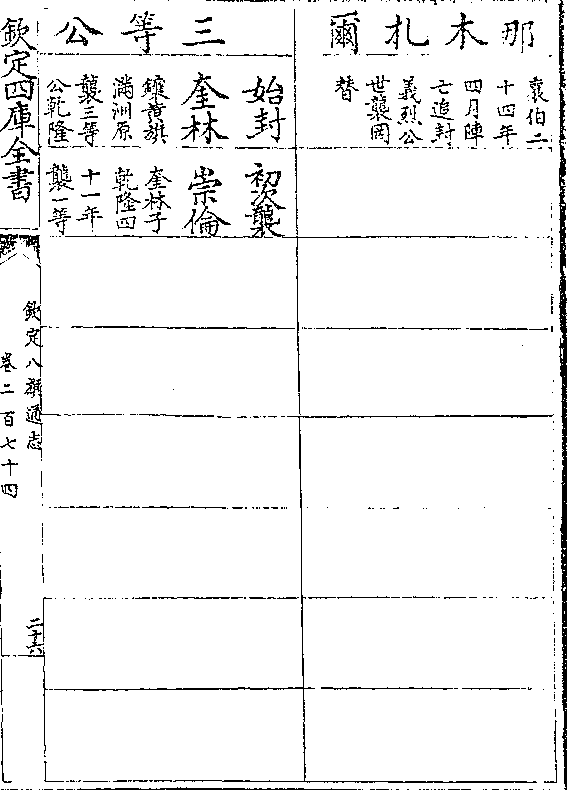 那木扎爾
襲伯二
十四年
四月陣
亡追封
義烈公
世襲罔
替
三等公
始封
奎林
鑲黄旗
滿洲原
襲三等
公乾隆
初次襲
崇倫
奎林子
乾隆四
十一年
襲一等
欽定四庫全書
欽定八旗通志
卷二百七十四
二十六